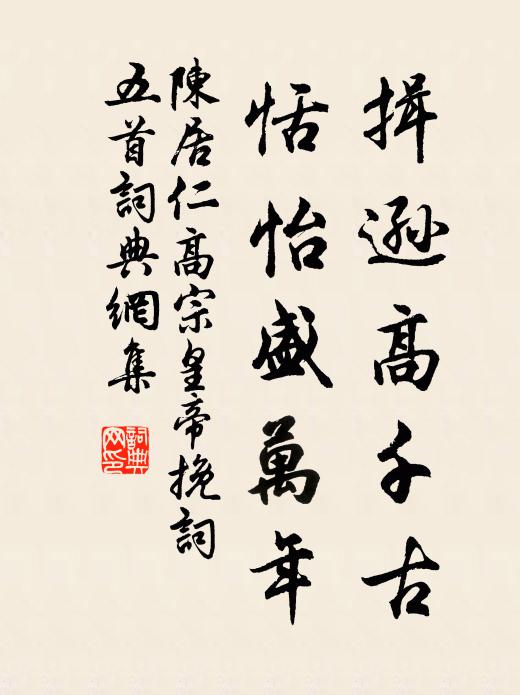 揖遜高千古
恬怡盛萬年
陳居仁高宗皇帝挽詞
五首詞典網集
詞典網印